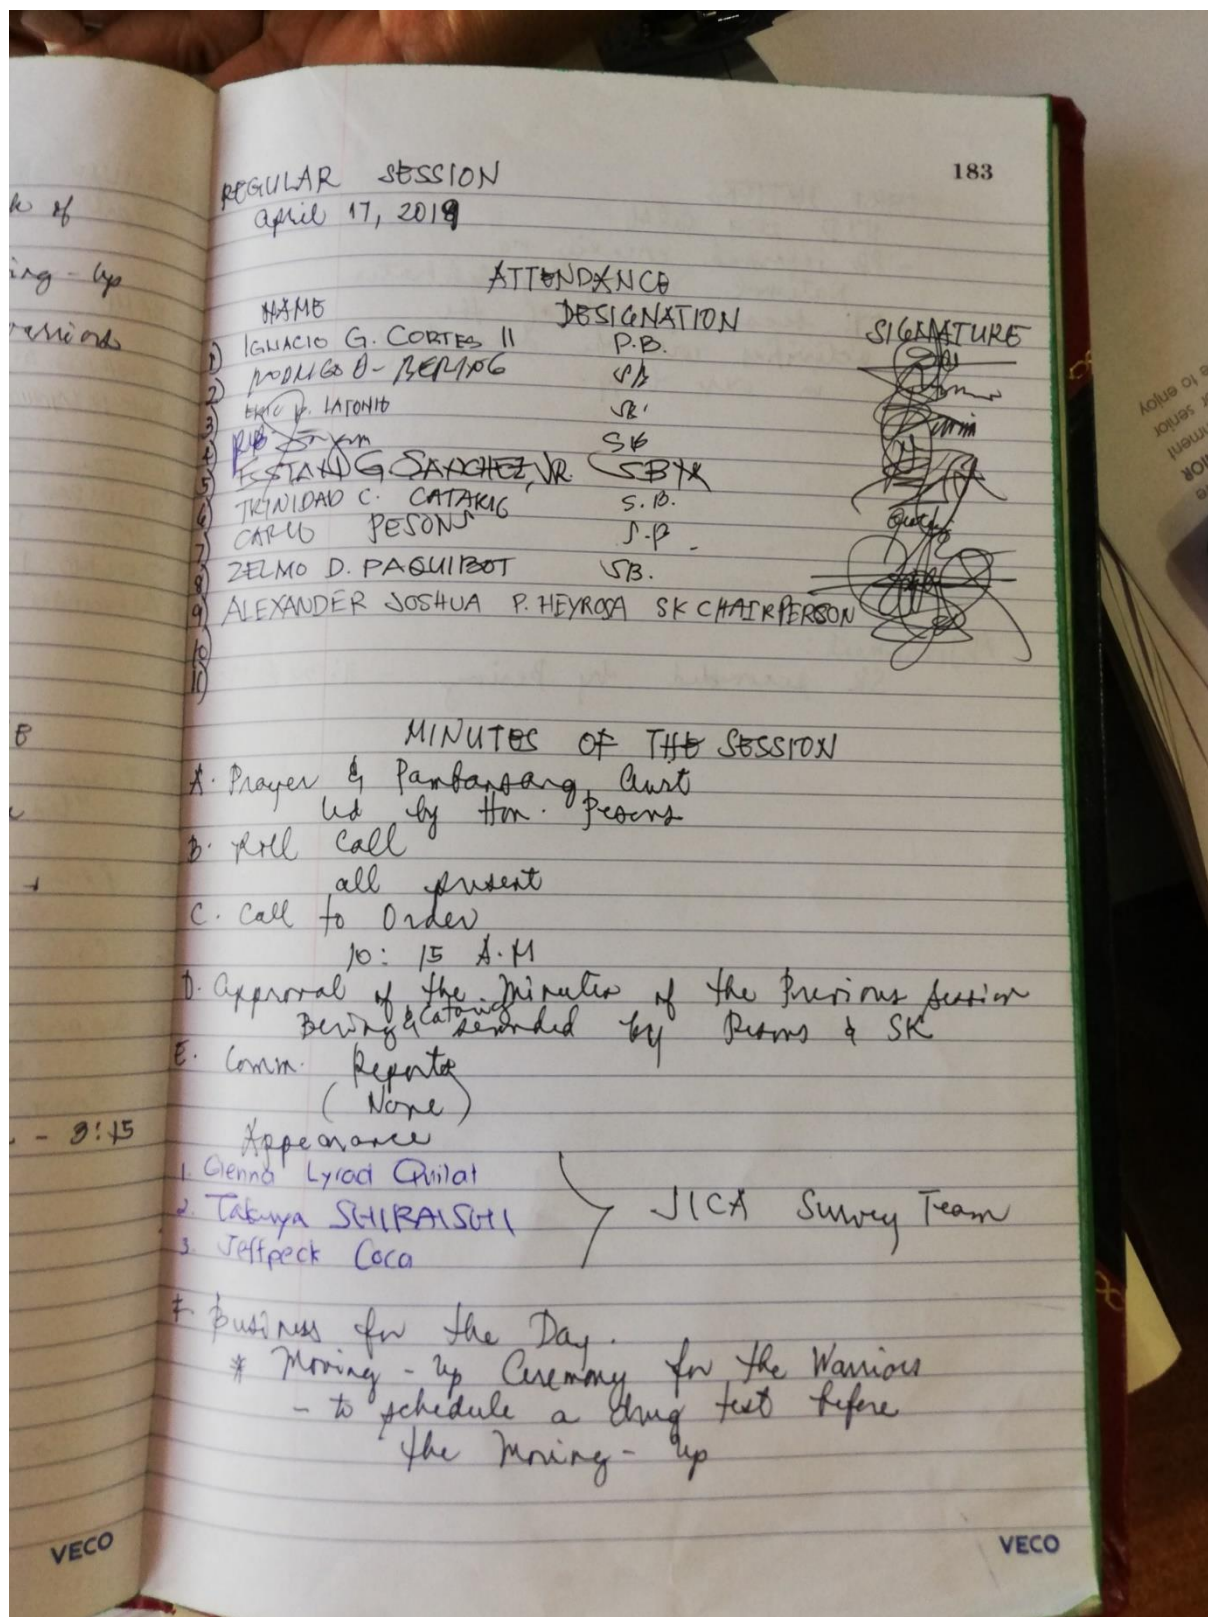 183
REGULAR SESSION
April 17, 2019
ATTENDANCE
NAME DESIGNATION SIGNATURE
1) IGNACIO G. CORTES II P.B.
2) RODRIGO SB
3) LATONIO
4) SB
5) G. SANCHEZ, JR. SB
6) TRINIDAD C. S.B.
7) CARLO PESONS S.B.
8) ZELMO D. PAQUIBOT SB.
9) ALEXANDER JOSHUA P. HEYROSA SK CHAIRPERSON
10)
11)
MINUTES OF THE SESSION
A. Prayer & Pambansang Awit
led by Hon. Pesons
B. Roll Call
all present
C. Call to Order
10:15 A.M
D. Approval of the Minutes of the Previous Session
Bering & seconded by Pesons & SK
E. Comm. Reports
(None)
Appearance
1. Glenna Lyrad Quilat
2. Takuya SHIRAISHI
3. Jeffpeck Coca
JICA Survey Team
F. Business for the Day.
* Moving-up Ceremony for the Warriors
- to schedule a drug test before
the Moving-up
VECO
ing-up
- 3:15
VECO